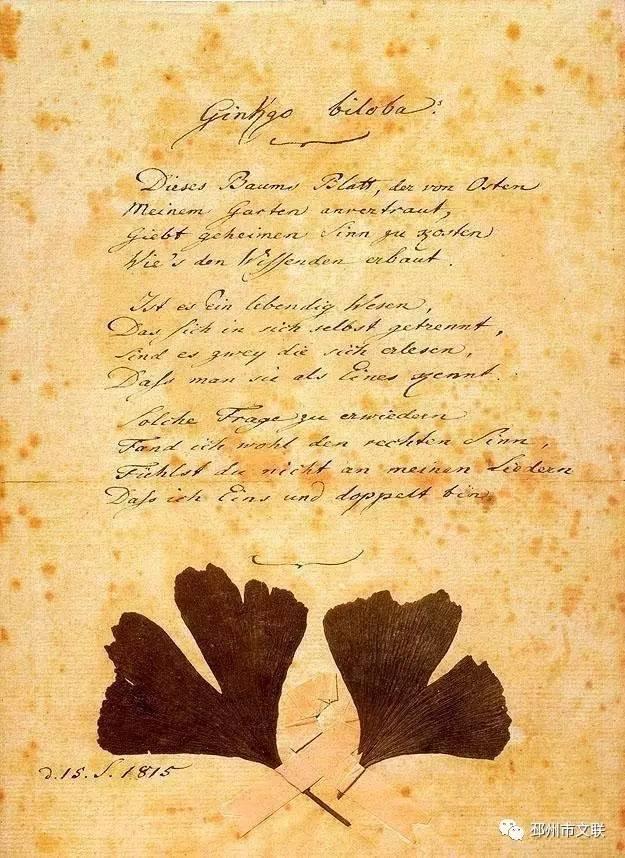 Ginkgo biloba.
Dieses Baums Blatt, der von Osten
Meinem Garten anvertraut,
Giebt geheimen Sinn zu kosten
Wie's den Wissenden erbaut.
Ist es Ein lebendig Wesen,
Das sich in sich selbst getrennt,
Sind es zwey die sich erlesen,
Dass man sie als Eines kennt.
Solche Frage zu erwiedern
Fand ich wohl den rechten Sinn,
Fühlst du nicht an meinen Liedern
Dass ich Eins und doppelt bin
d. 15. S. 1815
邳州市文联